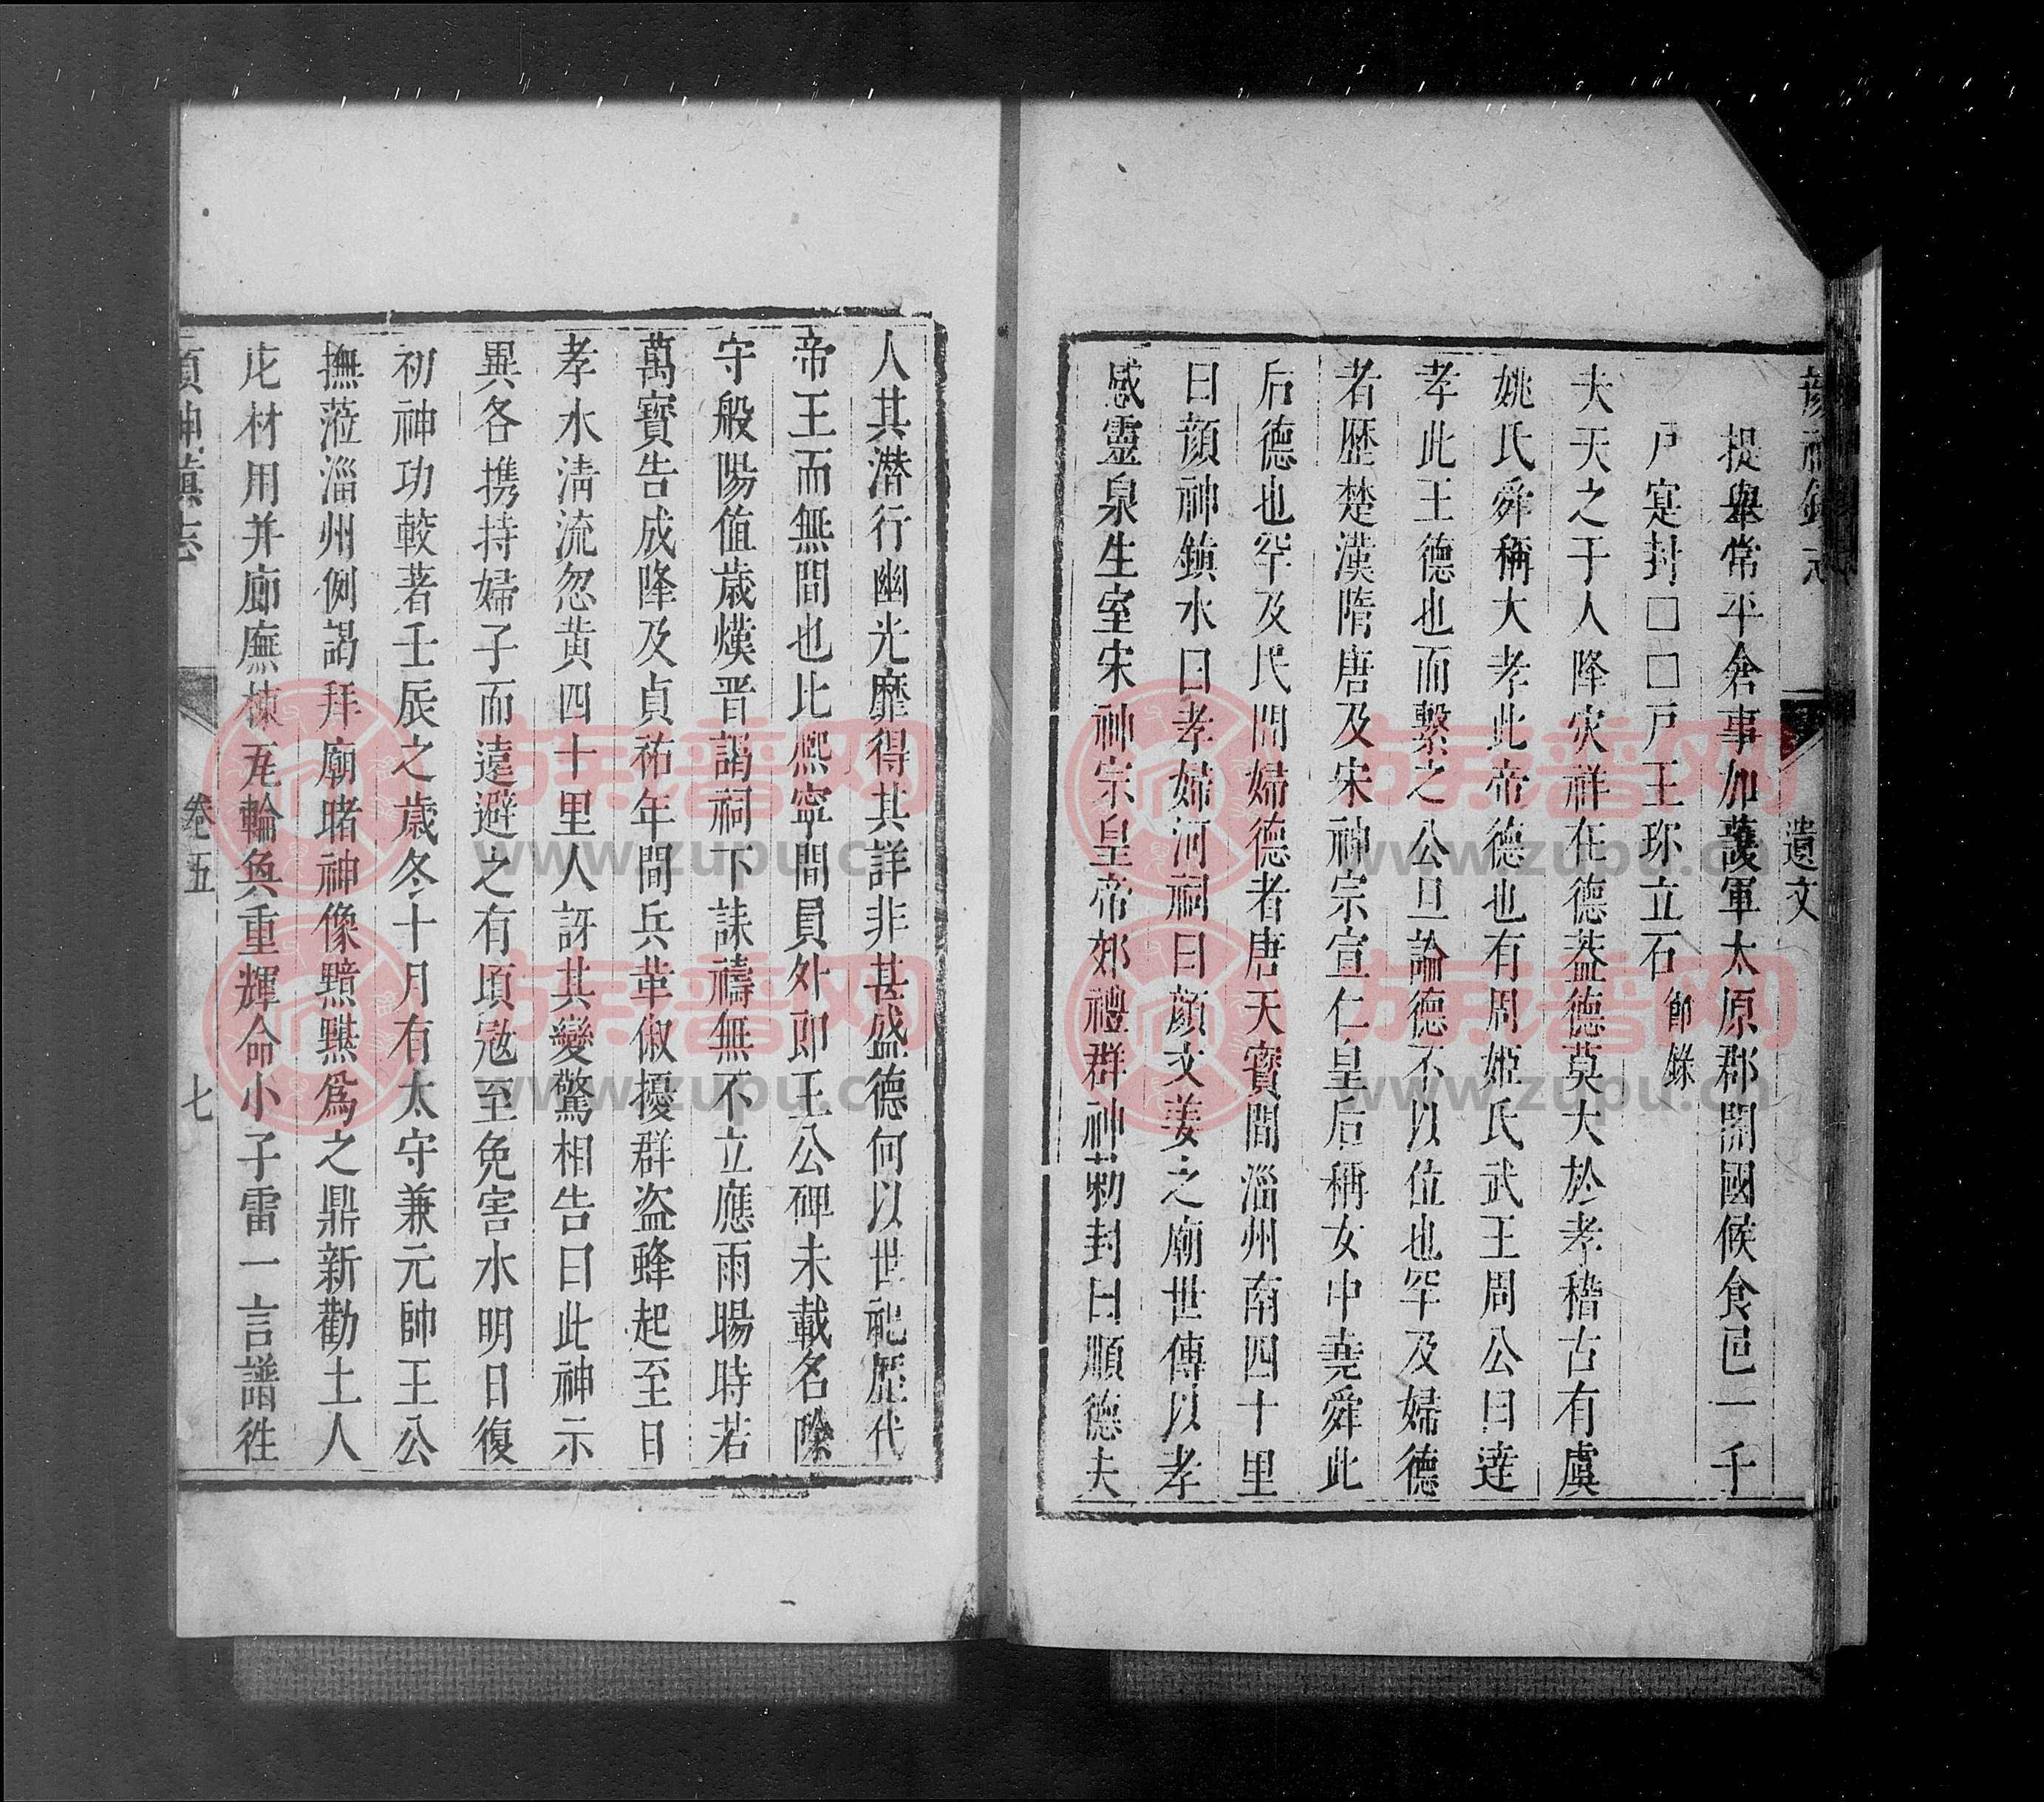 顏神鎮志
遺文
提舉常平倉事加護軍太原郡開國候食邑一千
戶寔封□□戶王珎立石 節錄
夫天之于人降灾祥在德葢德莫大於孝稽古有虞
姚氏舜稱大孝此帝德也有周姬氏武王周公曰達
孝此王德也而繫之公旦論德不以位也罕及婦德
者歷楚漢隋唐及宋神宗宣仁皇后稱女中堯舜此
后德也罕及民間婦德者唐天寳間淄州南四十里
曰顏神鎮水曰孝婦河祠曰顏文姜之廟世傳以孝
感靈泉生室宋神宗皇帝郊禮群神勅封曰順德夫
人其潜行幽光靡得其詳非甚盛德何以世祀歷代
帝王而無間也比熙寧間員外郎王公碑未載名除
守般陽值歲熯晋謁祠下誄禱無不立應雨暘時若
萬寳告成降及貞祐年間兵革俶擾群盗蜂起至日
孝水淸流忽黄四十里人訝其變驚相告曰此神示
異各携持婦子而遠避之有頃冦至免害水明日復
初神功較著壬辰之歲冬十月有太守兼元帥王公
撫蒞淄州例謁拜廟睹神像黯黮爲之鼎新勸土人
庀材用并廊廡棟瓦輪奐重輝命小子雷一言譜徃
顏神鎮志
卷五
七
族譜网
www.zupu.cn
族譜网
www.zupu.cn
族譜网
www.zupu.cn
族譜网
www.zupu.cn